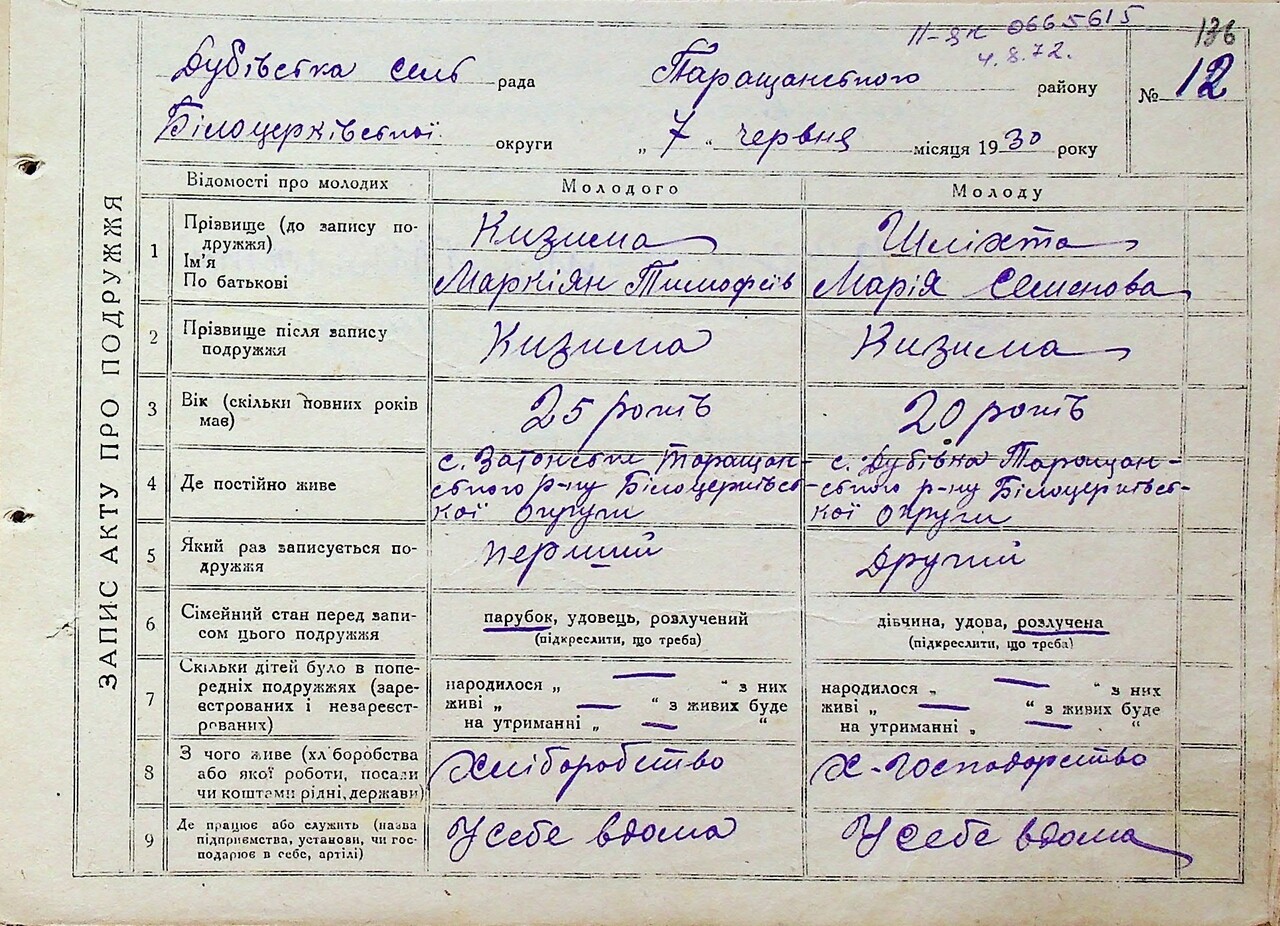 ІІ-ЗК 0665615
4.8.72.
136
Дубівська сель рада Таращанського району № 12
Білоцерківської округи „ 7 “ червня місяця 1930 року
ЗАПИС АКТУ ПРО ПОДРУЖЖЯ
Відомості про молодих Молодого Молоду
1 Прізвище (до запису по-
дружжя) Кизима Шліхта
Ім'я
По батькові Маркіян Тимофеїв Марія Семенова
2 Прізвище після запису
подружжя Кизима Кизима
3 Вік (скільки повних років
має) 25 років 20 років
4 Де постійно живе
с. Затонське Таращан- с. Дубівка Таращан-
ського р-ну Білоцерківсь- ського р-ну Білоцерківсь-
кої округи кої округи
5 Який раз записується по-
дружжя перший Другий
6 Сімейний стан перед запи-
сом цього подружжя
парубок, удовець, розлучений дівчина, удова, розлучена
(підкреслити, що треба) (підкреслити, що треба)
7 Скільки дітей було в попе-
редніх подружжях (заре-
єстрованих і незареєст-
рованих)
народилося „ — “ з них народилося „ — “ з них
живі „ — “ з живих буде живі „ — “ з живих буде
на утриманні „ — “ на утриманні „ — “
8 З чого живе (хліборобства
або якої роботи, посади
чи коштами рідні, держави)
Хліборобство Х-Господарство
9 Де працює або служить (назва
підприємства, установи, чи гос-
подарює в себе, артілі)
У себе вдома У себе вдома